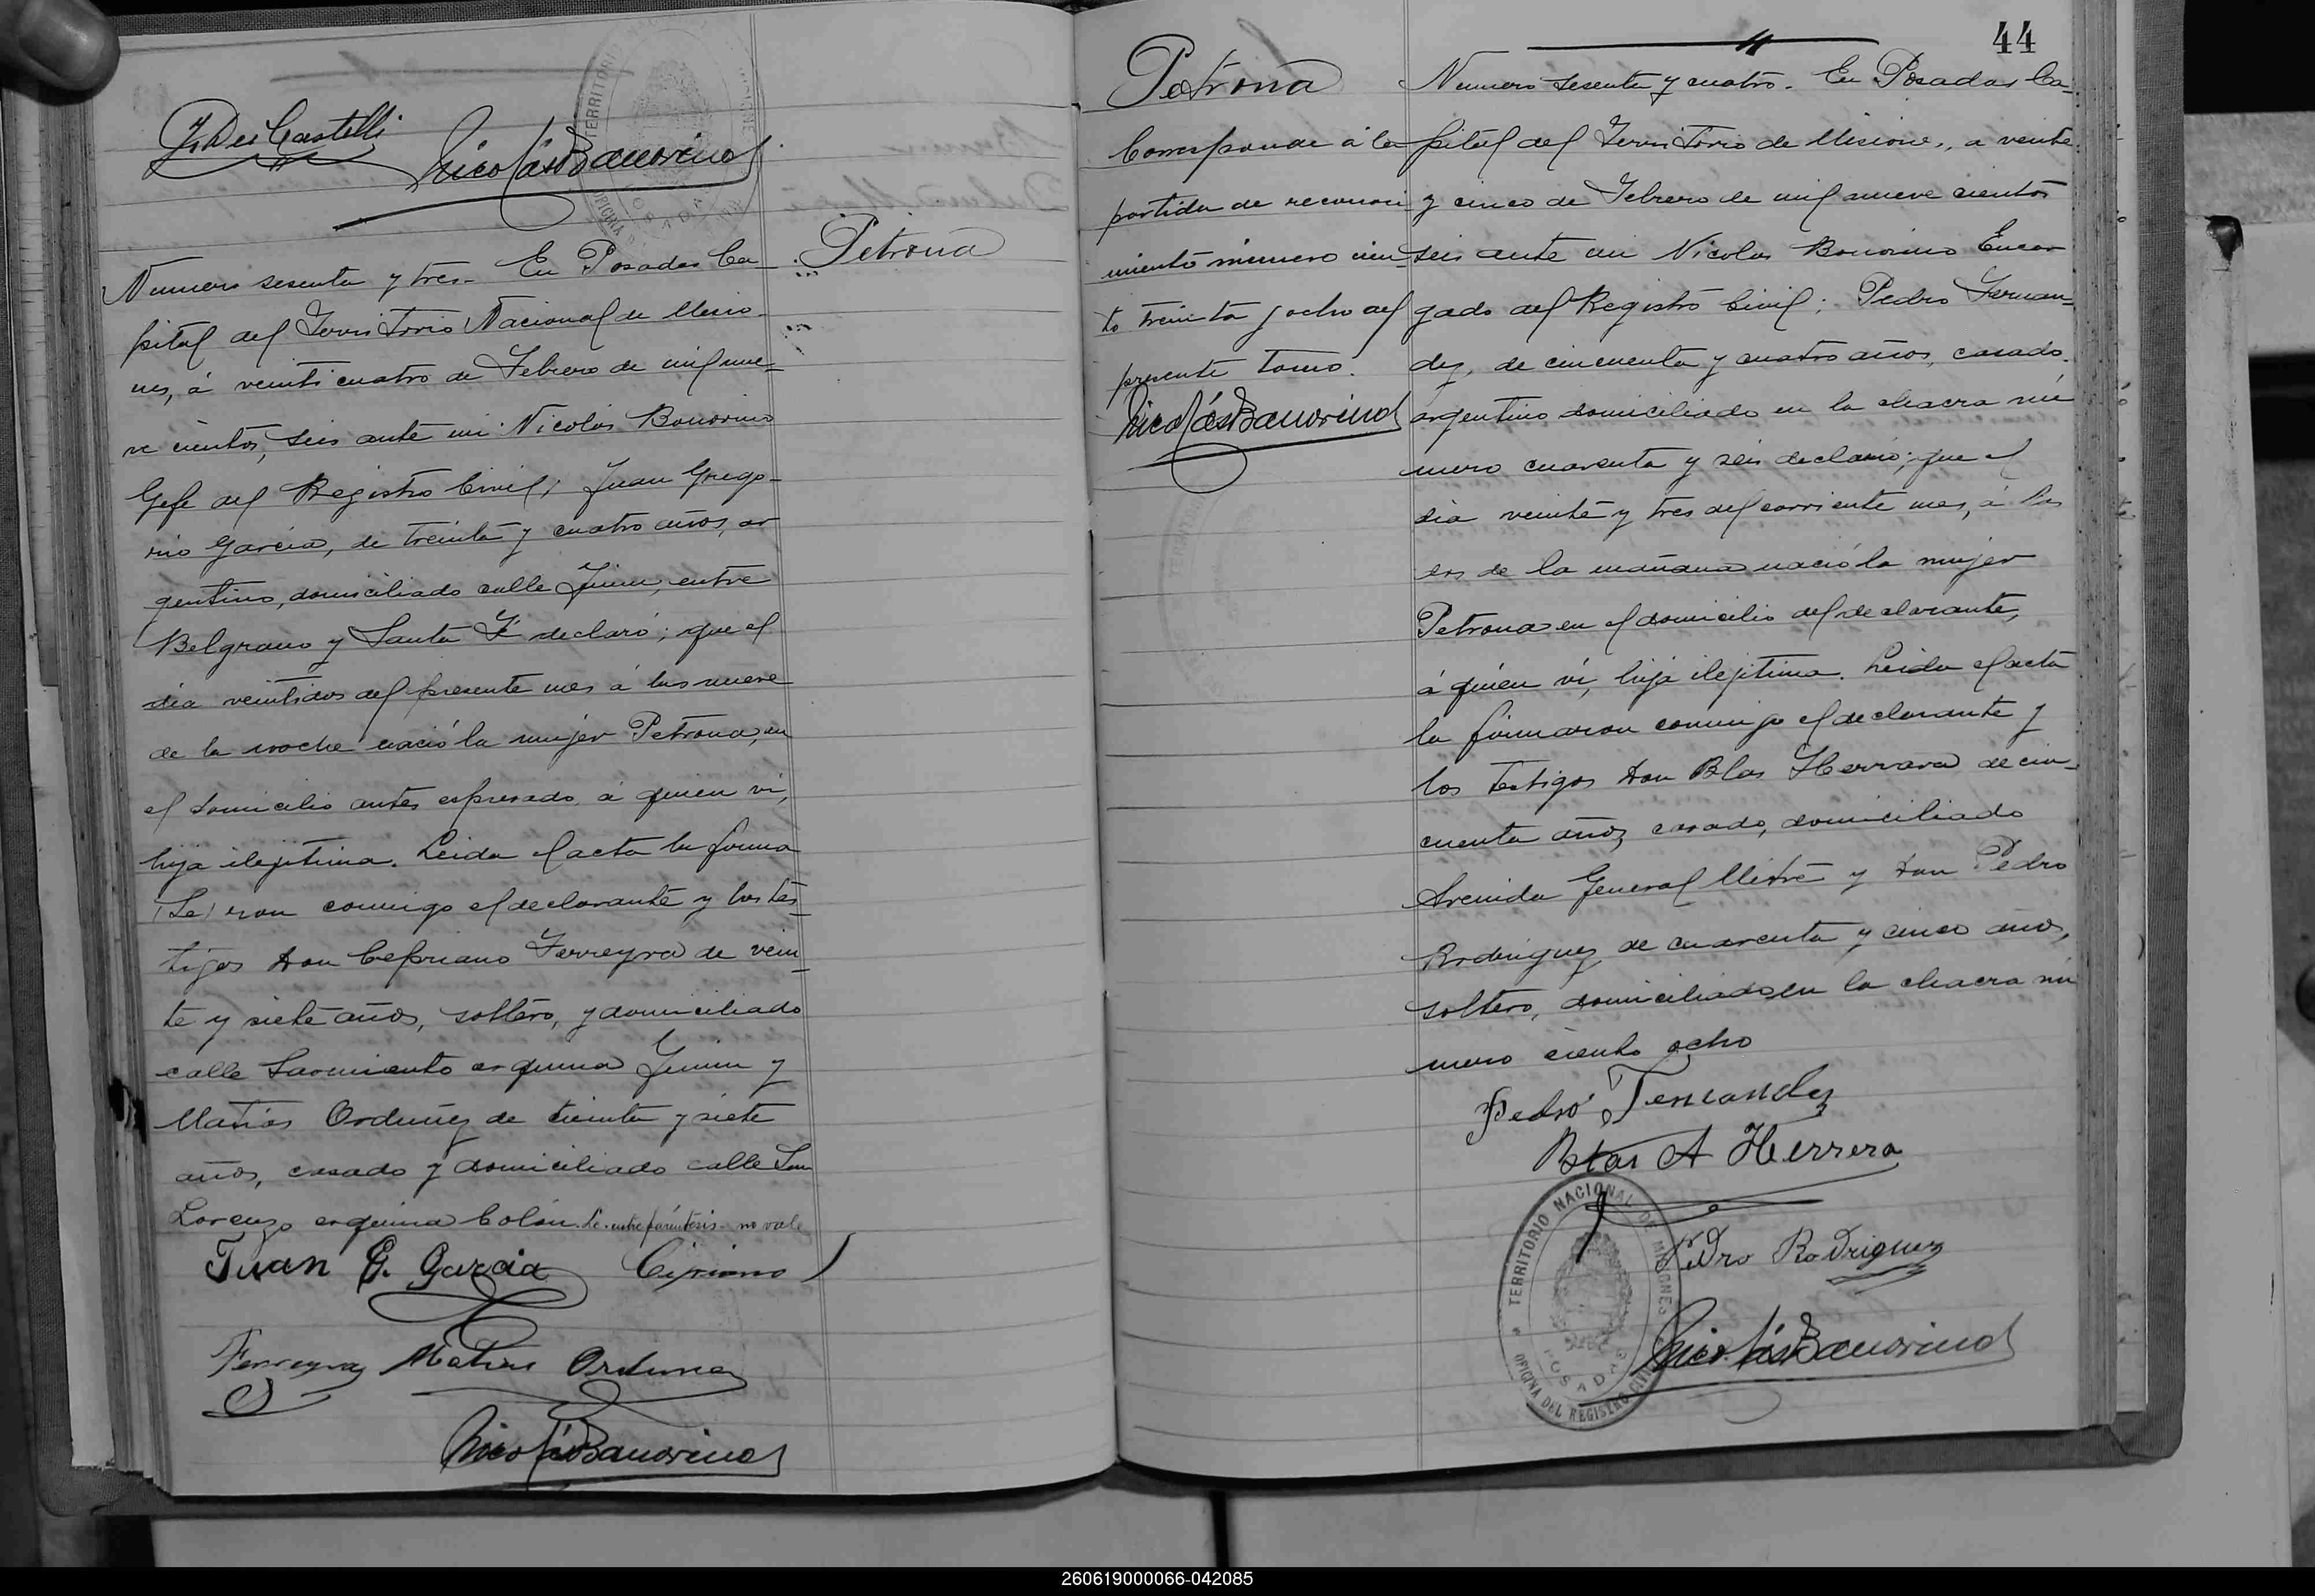 J. Dei Castelli
Nicolás Bonorino
TERRITORIO
OFICINA
POSADAS
Petrona
Numero sesenta y tres. En Posadas Ca-
pital del Territorio Nacional de Misio-
nes, á veinticuatro de Febrero de mil nue-
ve cientos, seis ante mi Nicolás Bonorino
Gefe del Registro Civil, Juan Grego-
rio Garcia, de treinta y cuatro años, ar
gentino, domiciliado calle Junin, entre
Belgrano y Santa Fé declaró; que el
dia veintidos del presente mes á las nueve
de la noche nació la mujer Petrona, en
el domicilio antes espresado á quien vi,
hija ilejitima. Leida el acta la firma
(Le) ron conmigo el declarante y los tes-
tigos Don Cepriano Ferreyra de vein-
te y siete años, soltero, y domiciliado
calle Sarmiento esquina Junin y
Matias Orduñez de treinta y siete
años, casado y domiciliado calle San
Lorenzo esquina Colón. Le. entre paréntesis - no vale
Juan G. Garcia Cipriano
Ferreyra Matias Orduñez
Nicolás Bonorino
44
Petrona
Corresponde á la
partida de reconoci
miento número cien-
to treinta y ocho del
presente tomo.
Nicolás Bonorino
Numero sesenta y cuatro. En Posadas Ca-
pital del Territorio de Misiones, a veinte
y cinco de Febrero de mil nueve cientos
seis ante mi Nicolas Bonorino Encar
gado del Registro Civil; Pedro Fernan-
dez, de cincuenta y cuatro años, casado,
argentino domiciliado en la chacra nú
mero cuarenta y seis declaró; que el
dia veinte y tres del corriente mes, á las
dos de la mañana nació la mujer
Petrona en el domicilio del declarante,
á quién vi, hija ilejitima. Leida el acta
la firmaron conmigo el declarante y
los testigos Don Blas Herrera de cin-
cuenta años, casado, domiciliado
Avenida General Mitre y Don Pedro
Rodriguez de cuarenta y cinco años,
soltero, domiciliado en la chacra nú
mero ciento ocho
Pedro Fernandez
Blas A Herrera
Pedro Rodriguez
Nicolás Bonorino
TERRITORIO NACIONAL DE MISIONES
POSADAS
OFICINA DEL REGISTRO CIVIL
260619000066-042085